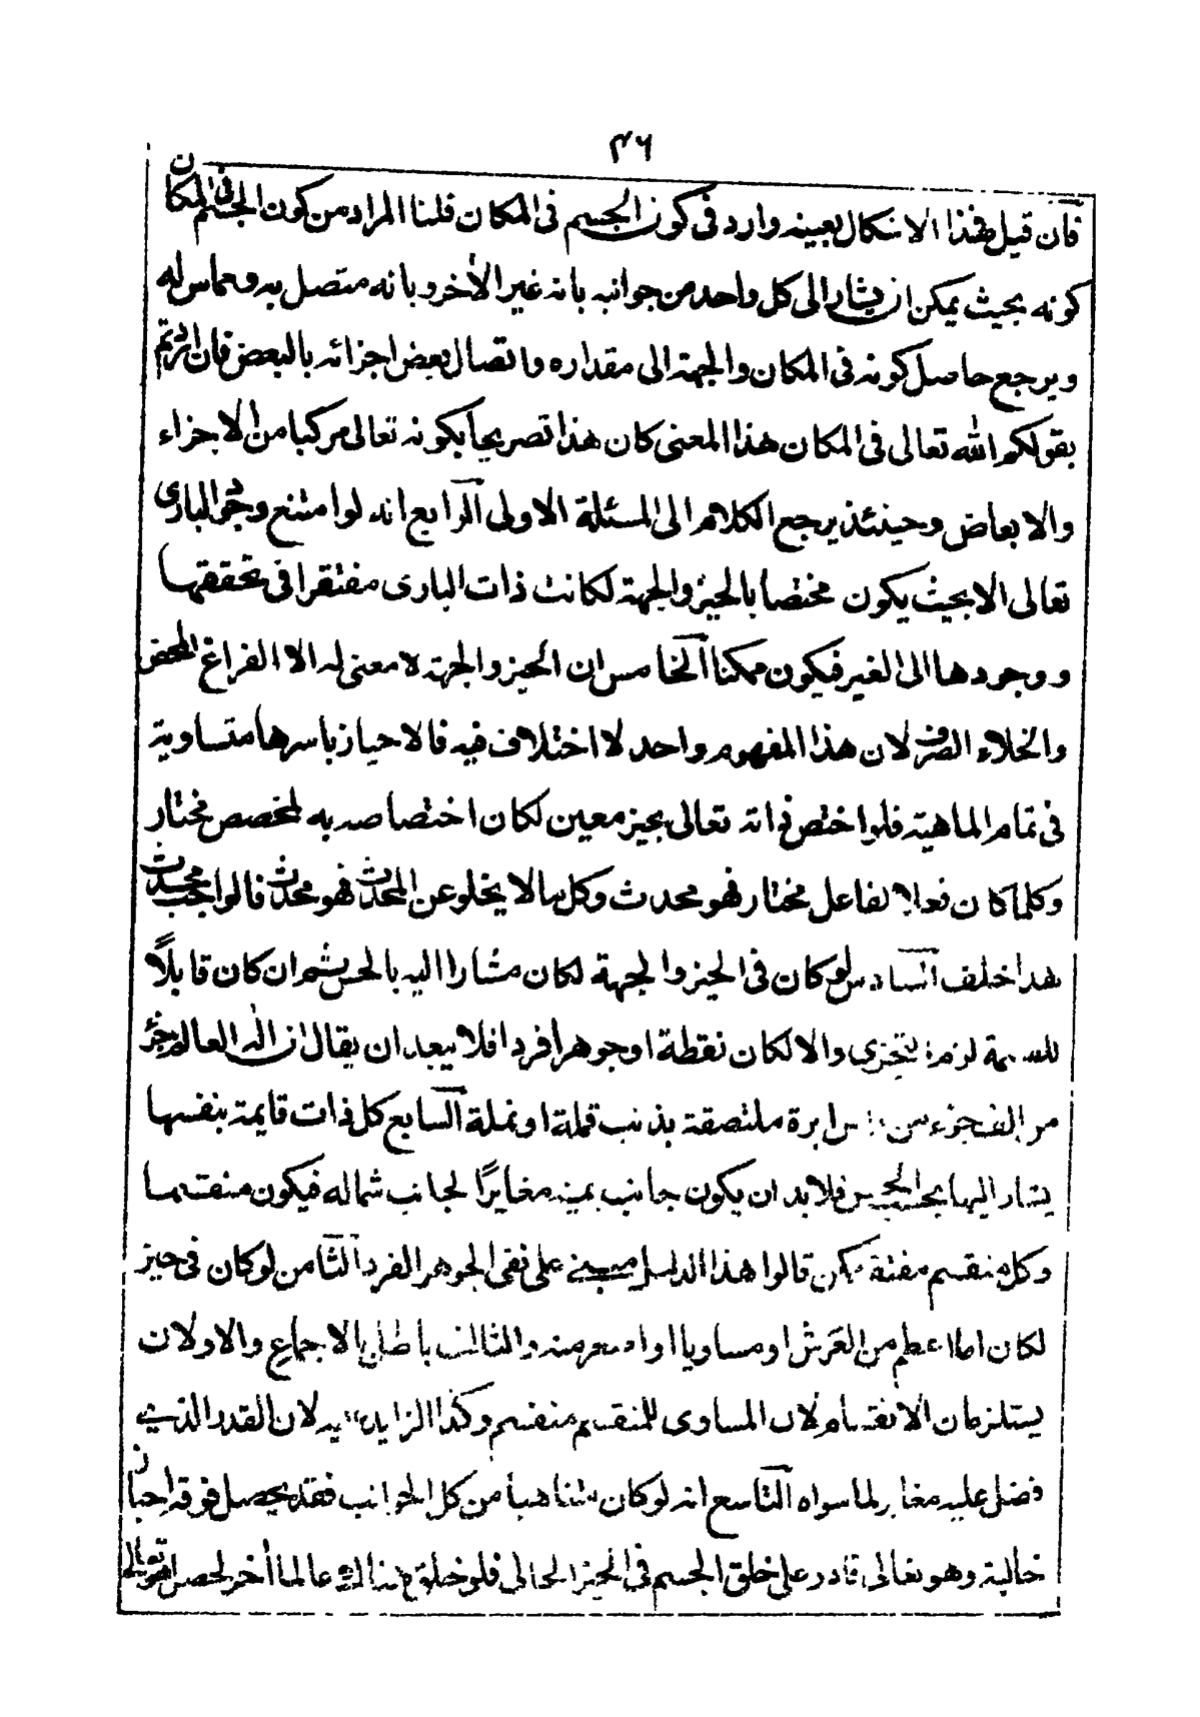 ٣٦
فان قيل فهذا الاشكال بعينه وارد فى كون الجسم فى المكان قلنا المراد من كون الجسم فى المكان
كونه بحيث يمكن ان يشار الى كل واحد من جوانبه بانه غير الأخر وبانه متصل به ومماس له
ويرجع حاصل كونه فى المكان والجهة الى مقداره واتصال بعض اجزائه بالبعض فان اردتم
بقولكم الله تعالى فى المكان هذا المعنى كان هذا تصريحا بكونه تعالى مركبا من الاجزاء
والابعاض وحينئذ يرجع الكلام الى المسئلة الاولى الرابع انه لو امتنع وجود البارى
تعالى الا بحيث يكون مختصا بالحيز والجهة لكانت ذات البارى مفتقرا فى تحققها
ووجودها الى الغير فيكون ممكنا الخامس ان الحيز والجهة لا معنى له الا الفراغ المحض
والخلاء الصرف لان هذا المفهوم واحد لا اختلاف فيه فالاحياز باسرها متساوية
فى تمام الماهية فلو اختص ذاته تعالى بحيز معين لكان اختصاصه به لمخصص مختار
وكلما كان فعلا لفاعل مختار فهو محدث وكل ما لا يخلو عن المحدث فهو محدث فالواجب محدث
هذا خلف السادس لو كان فى الحيز والجهة لكان مشارا اليه بالحس ثم ان كان قابلًا
للقسمة لزم التجزى والا لكان نقطة او جوهرا فردا فلا يبعد ان يقال ان اله العالم جزء
من الف جزء من راس ابرة ملتصقة بذنب قملة او نملة السابع كل ذات قايمة بنفسها
يشار اليها بحسب الحس فلا بد ان يكون جانب يمينه مغايرًا لجانب شماله فيكون منقسما
وكل منقسم مفتقر ممكن قالوا هذا الدليل مبنى على نفى الجوهر الفرد الثامن لو كان فى حيز
لكان اما اعظم من العرش او مساويا او اصغر منه والثالث باطل بالاجماع والاولان
يستلزمان الانقسام لان المساوى للمنقسم منقسم وكذا الزايد عليه لان القدر الذى
فضل عليه مغاير لما سواه التاسع انه لو كان متناهيا من كل الجوانب فقد يحصل فوقه احياز
خالية وهو تعالى قادر على خلق الجسم فى الحيز الخالى فلو خلق هنالك عالما أخر لحصل هو تعالى